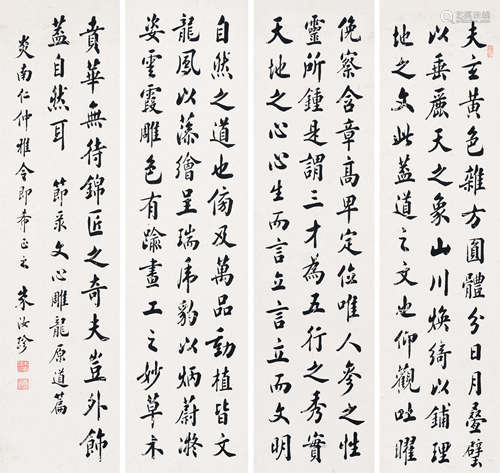 夫玄黃色雜方圓體分日月疊璧
以垂麗天之象山川煥綺以鋪理
地之文此蓋道之文也仰觀吐曜
俛察含章高卑定位唯人參之性
靈所鍾是謂三才為五行之秀實
天地之心心生而言立言立而文明
自然之道也傍及萬品動植皆文
龍鳳以藻繪呈瑞虎豹以炳蔚凝
姿雲霞雕色有踰畫工之妙草木
賁華無待錦匠之奇夫豈外飾
蓋自然耳 節录文心雕龍原道篇
炎南仁仲雅令即希正之 朱汝珍